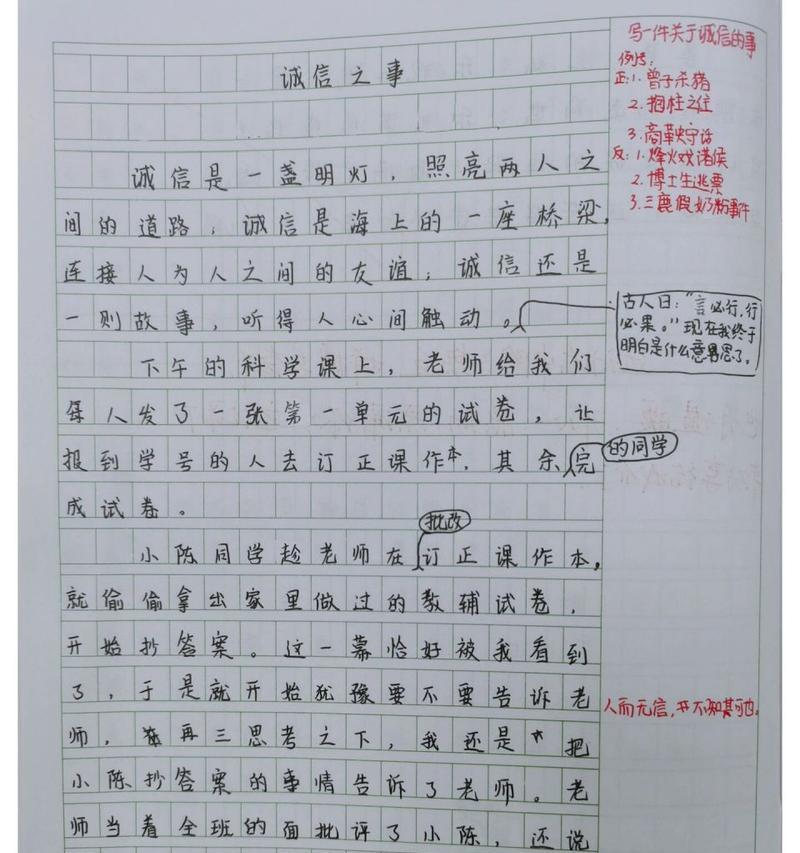 诚信之事
诚信是一盏明灯，照亮两人之
间的道路，诚信是海上的一座桥梁，
连接人为人之间的友谊；诚信还是
一则故事，听得人心间触动。
下午的科学课上，老师给我们
每人发了一张第一单元的试卷，让
报到学号的人去订正课作本，其余完
成试卷。
小陈同学趁老师在订正课作本，
就偷偷拿出家里做过的教辅试卷，
开始抄答案。这一幕恰好被我看到
了，于是就开始犹豫要不要告诉老
师，再三思考之下，我还是把
小陈抄答案的事情告诉了老师。老
师当着全班的面批评了小陈，还说
写一件关于诚信的事
例子：
正：1.曾子杀猪
2.抱柱之信
3.商鞅守诺
反：1.烽火戏诸侯
2.博士生逃票
3.三鹿假奶粉事件
古人曰：“言必行，行
必果。”现在我终于
明白是什么意思了。
的同学
批改
人而无信，不知其可也。